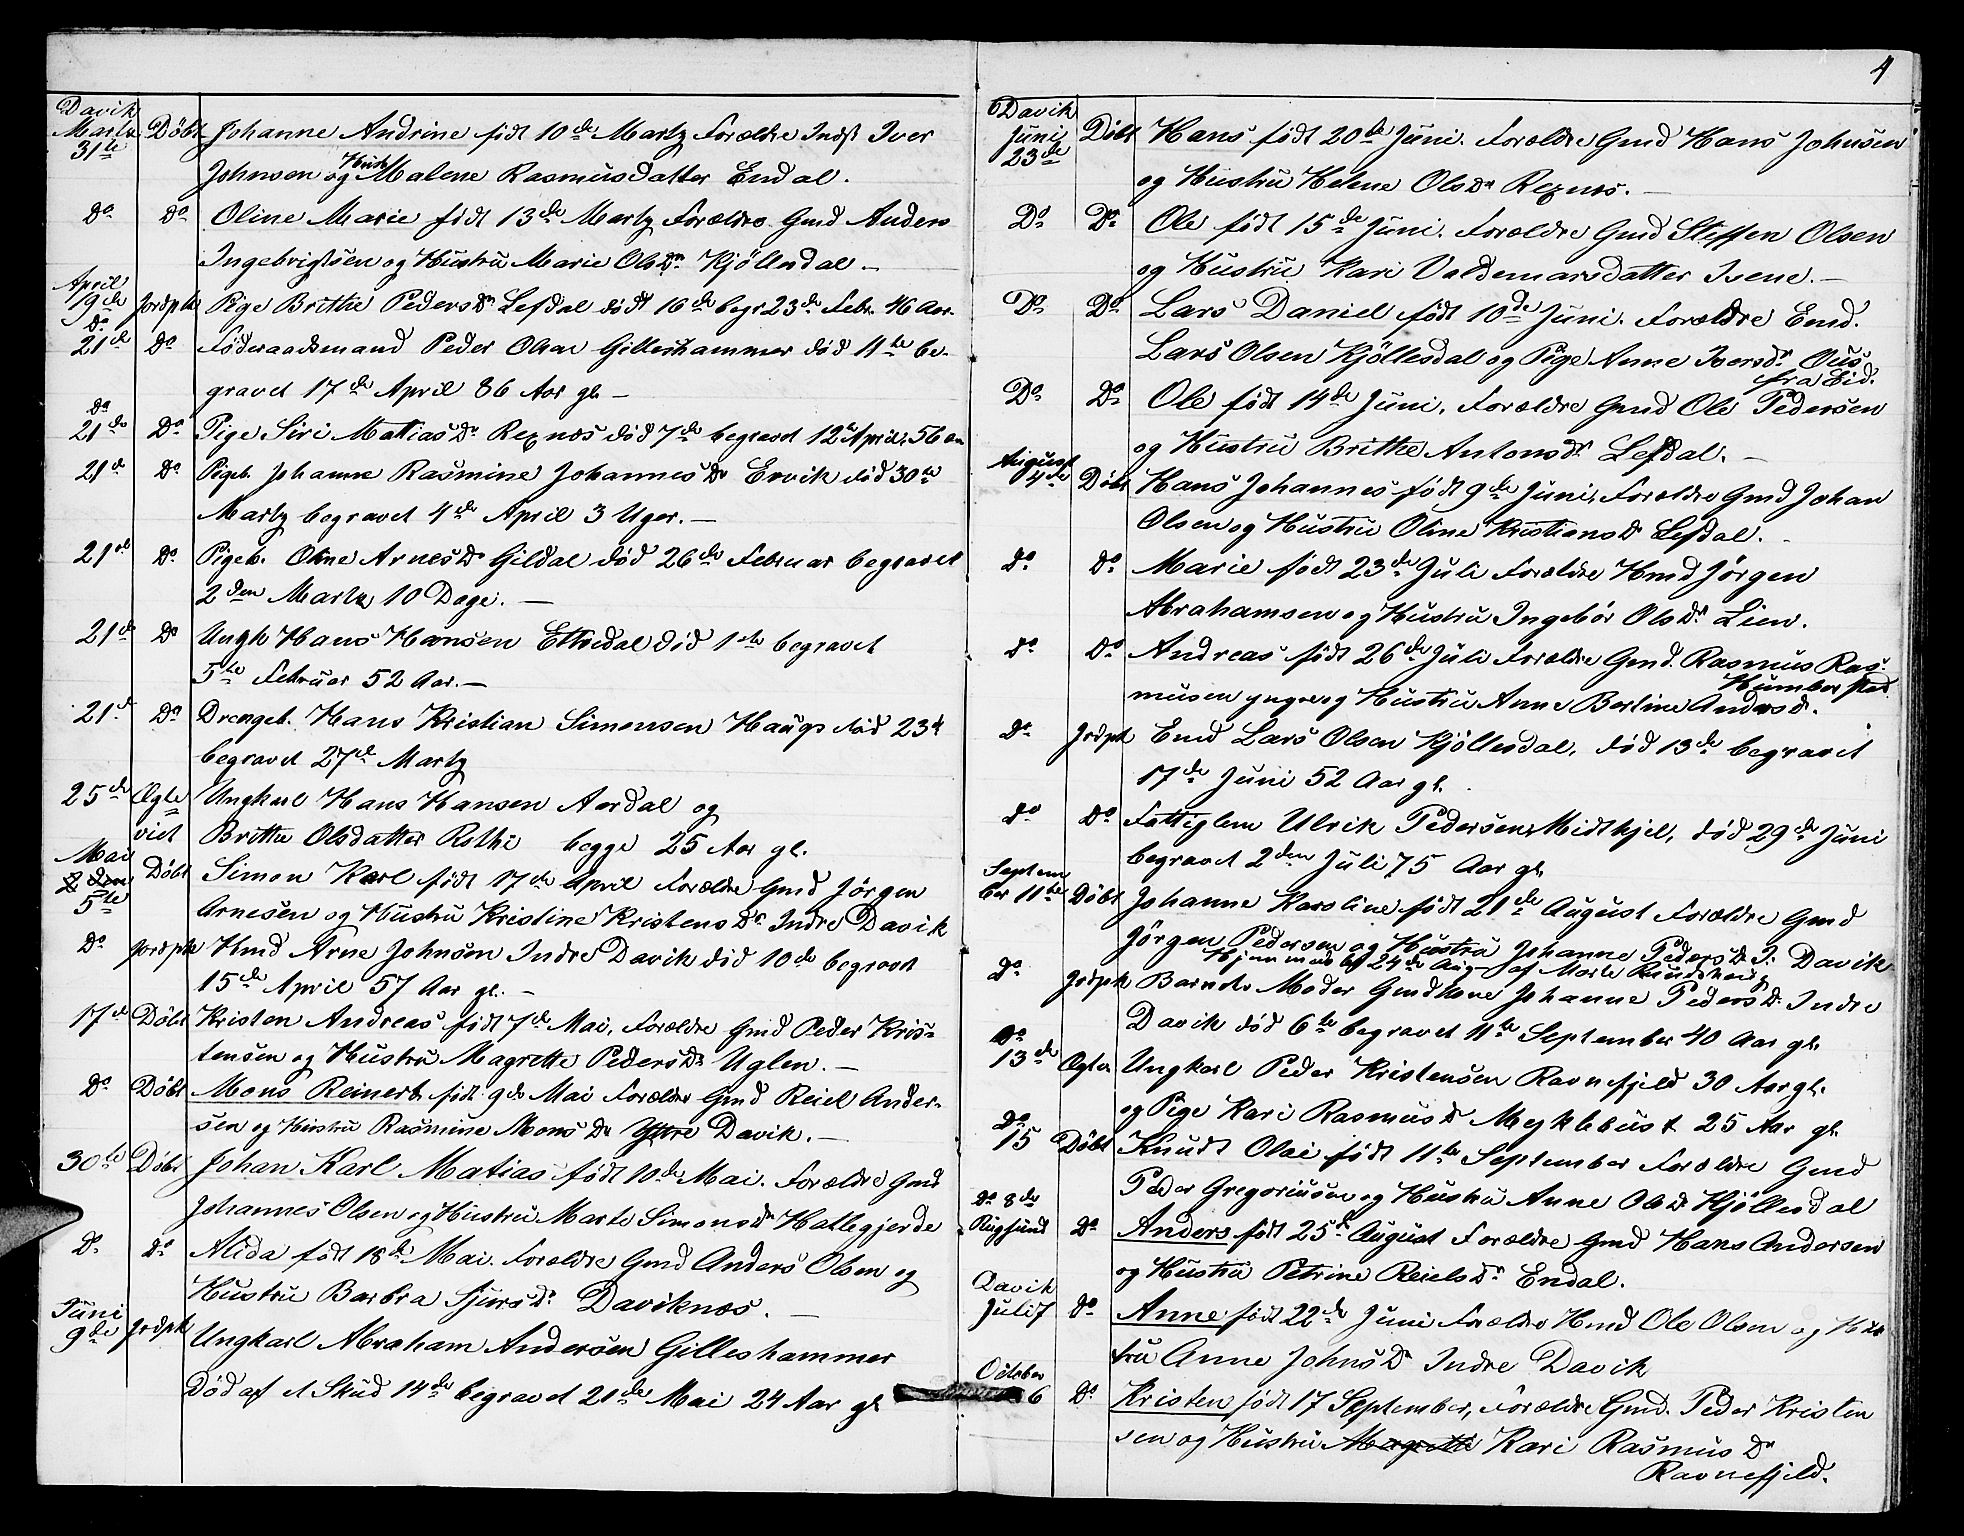 4
Davik
Martz
31te Döbt Johanne Andrine född 10de Martz Forældre Indst Iver
Johnsen og Hustr Malene Rasmusdatter Endal.
Do Do Oline Marie född 13de Martz Forældre Gmd Anders
Ingebrigtsen og Hustru Marie Olsdr Kjöllesdal –
April
19de Jordpk Pige Brithe Pedersdr Lefdal död 16de begr 23de Febr. 46 Aar.
Do
21de Do Föderaadsmand Peder Olsen Gilleshammer död 11te be-
gravet 17de April 86 Aar gl. –
Do
21de Do Pige Siri Matiasdr Rexnæs död 7de begravet 12te April, 56 aar
21de Do Pigeb. Johanne Rasmine Johannesdr Ervik död 30te
Martz begravet 4de April 3 Uger. –
21de Do Pigeb. Oline Arnesdr Gildal död 26de Februar begravet
2den Martz 10 Dage. –
21de Do Ungk Hans Hansen Ettredal död 1ste begravet
5te Februar 52 Aar. –
21de Do Drengeb. Hans Kristian Simonsen Haugs död 23d
begravet 27de Martz
25de Ægte Ungkarl Hans Hansen Aardal og
viet Brithe Olsdatter Rothi begge 25 Aar gl.
Mai
2den
5te Döbt Simon Karl född 17de April Forældre Gmd Jörgen
Arnesen og Hustru Kristine Kristensdr Indre Davik
Do Jordpk Hmd Arne Johnsen Indre Davik död 10de begravet
15de April 57 Aar gl. –
17de Döbt Kristen Andreas född 7de Mai, Forældre Gmd Peder Kris-
tensen og Hustru Magrethe Pedersdr Uglen. –
Do Döbt Mons Reinert född 9de Mai Forældre Gmd Reiel Ander-
sen og Hustru Rasmine Monsdr Yttre Davik. –
30te Döbt Johan Karl Matias född 10de Mai. Forældre Gmd
Johannes Olsen og Hustru Marte Simonsdr Hatlegjerde
Do Do Alida född 18de Mai. Forældre Gmd Anders Olsen og
Hustru Barbra Sjursdr Daviknæs. –
Juni
9de Jrdpk Ungkarl Abraham Andersen Gilleshammer
Död af et Skud 14de begravet 21de Mai 24 Aar gl.
Davik
Juni
23de Döbt Hans född 20de Juni. Forældre Gmd Hans Johnsen
og Hustru Helene Olsdr Rexnæs. –
Do Do Ole född 15de Juni. Forældre Gmd Steffen Olsen
og Hustru Kari Valdemarsdatter Isene. –
Do Do Lars Daniel född 10de Juni. Forældre Emd.
Lars Olsen Kjöllesdal og Pige Anne Iversdr Ous
fra Eid.
Do Do Ole född 14de Juni, Forældre Gmd Ole Pedersen
og Hustru Brithe Antonsdr Lefdal. –
August
4de Döbt Hans Johannes född 9de Juni, Forældre Gmd Johan
Olsen og Hustru Oline Kristiansdr Lefdal. –
Do Do Marie född 23de Juli Forældre Hmd Jörgen
Abrahamsen og Hustru Ingebör Olsdr Lien.
Do Do Andreas född 26de Juli Forældre Gmd. Rasmus Ras-
musen yngre og Hustru Anne Berline Andersdr. Humberstad
Do Jrdpk Emd Lars Olsen Kjöllesdal, död 13de begravet
17de Juni 52 Aar gl.
Do Do Fattiglem Ulrik Pedersen Midthjel, död 29de Juni
begravet 2den Juli 75 Aar gl.
Septem
ber 11te Döbt Johanne Karoline född 21de August Forældre Gmd
Jörgen Pedersen og Hustru Johanne Pedersdr I. Davik
Hjemmedöbt 24de Aug af Marte Knudshaug
Do Jrdpk Barnets Moder Gmdkone Johanne Pedersdr Indre
Davik död 6te begravet 11te September 40 Aar gl.
Do
13de Ægtev Ungkarl Peder Kristensen Ravnefjeld 30 Aar gl.
og Pige Kari Rasmusdr Myklebust 25 Aar gl.
Do
15 Döbt Knudt Olai född 11te September Forældre Gmd
Peder Gregoriusen og Hustru Anne Olsdr Kjöllesdal
Do 8de
Rugsund Do Anders född 25d August Forældre Gmd Hans Andersen
og Hustru Petrine Reielsdr Endal.
Davik
Juli 7 Do Anne född 22de Juni Forældre Hmd Ole Olsen og Hus
tru Anne Johnsdr Indre Davik
October
6 Do Kristen född 17 September, Forældre Gmd. Peder Kristen
sen og Hustru Magrethe Kari Rasmusdr
Ravnefjeld.